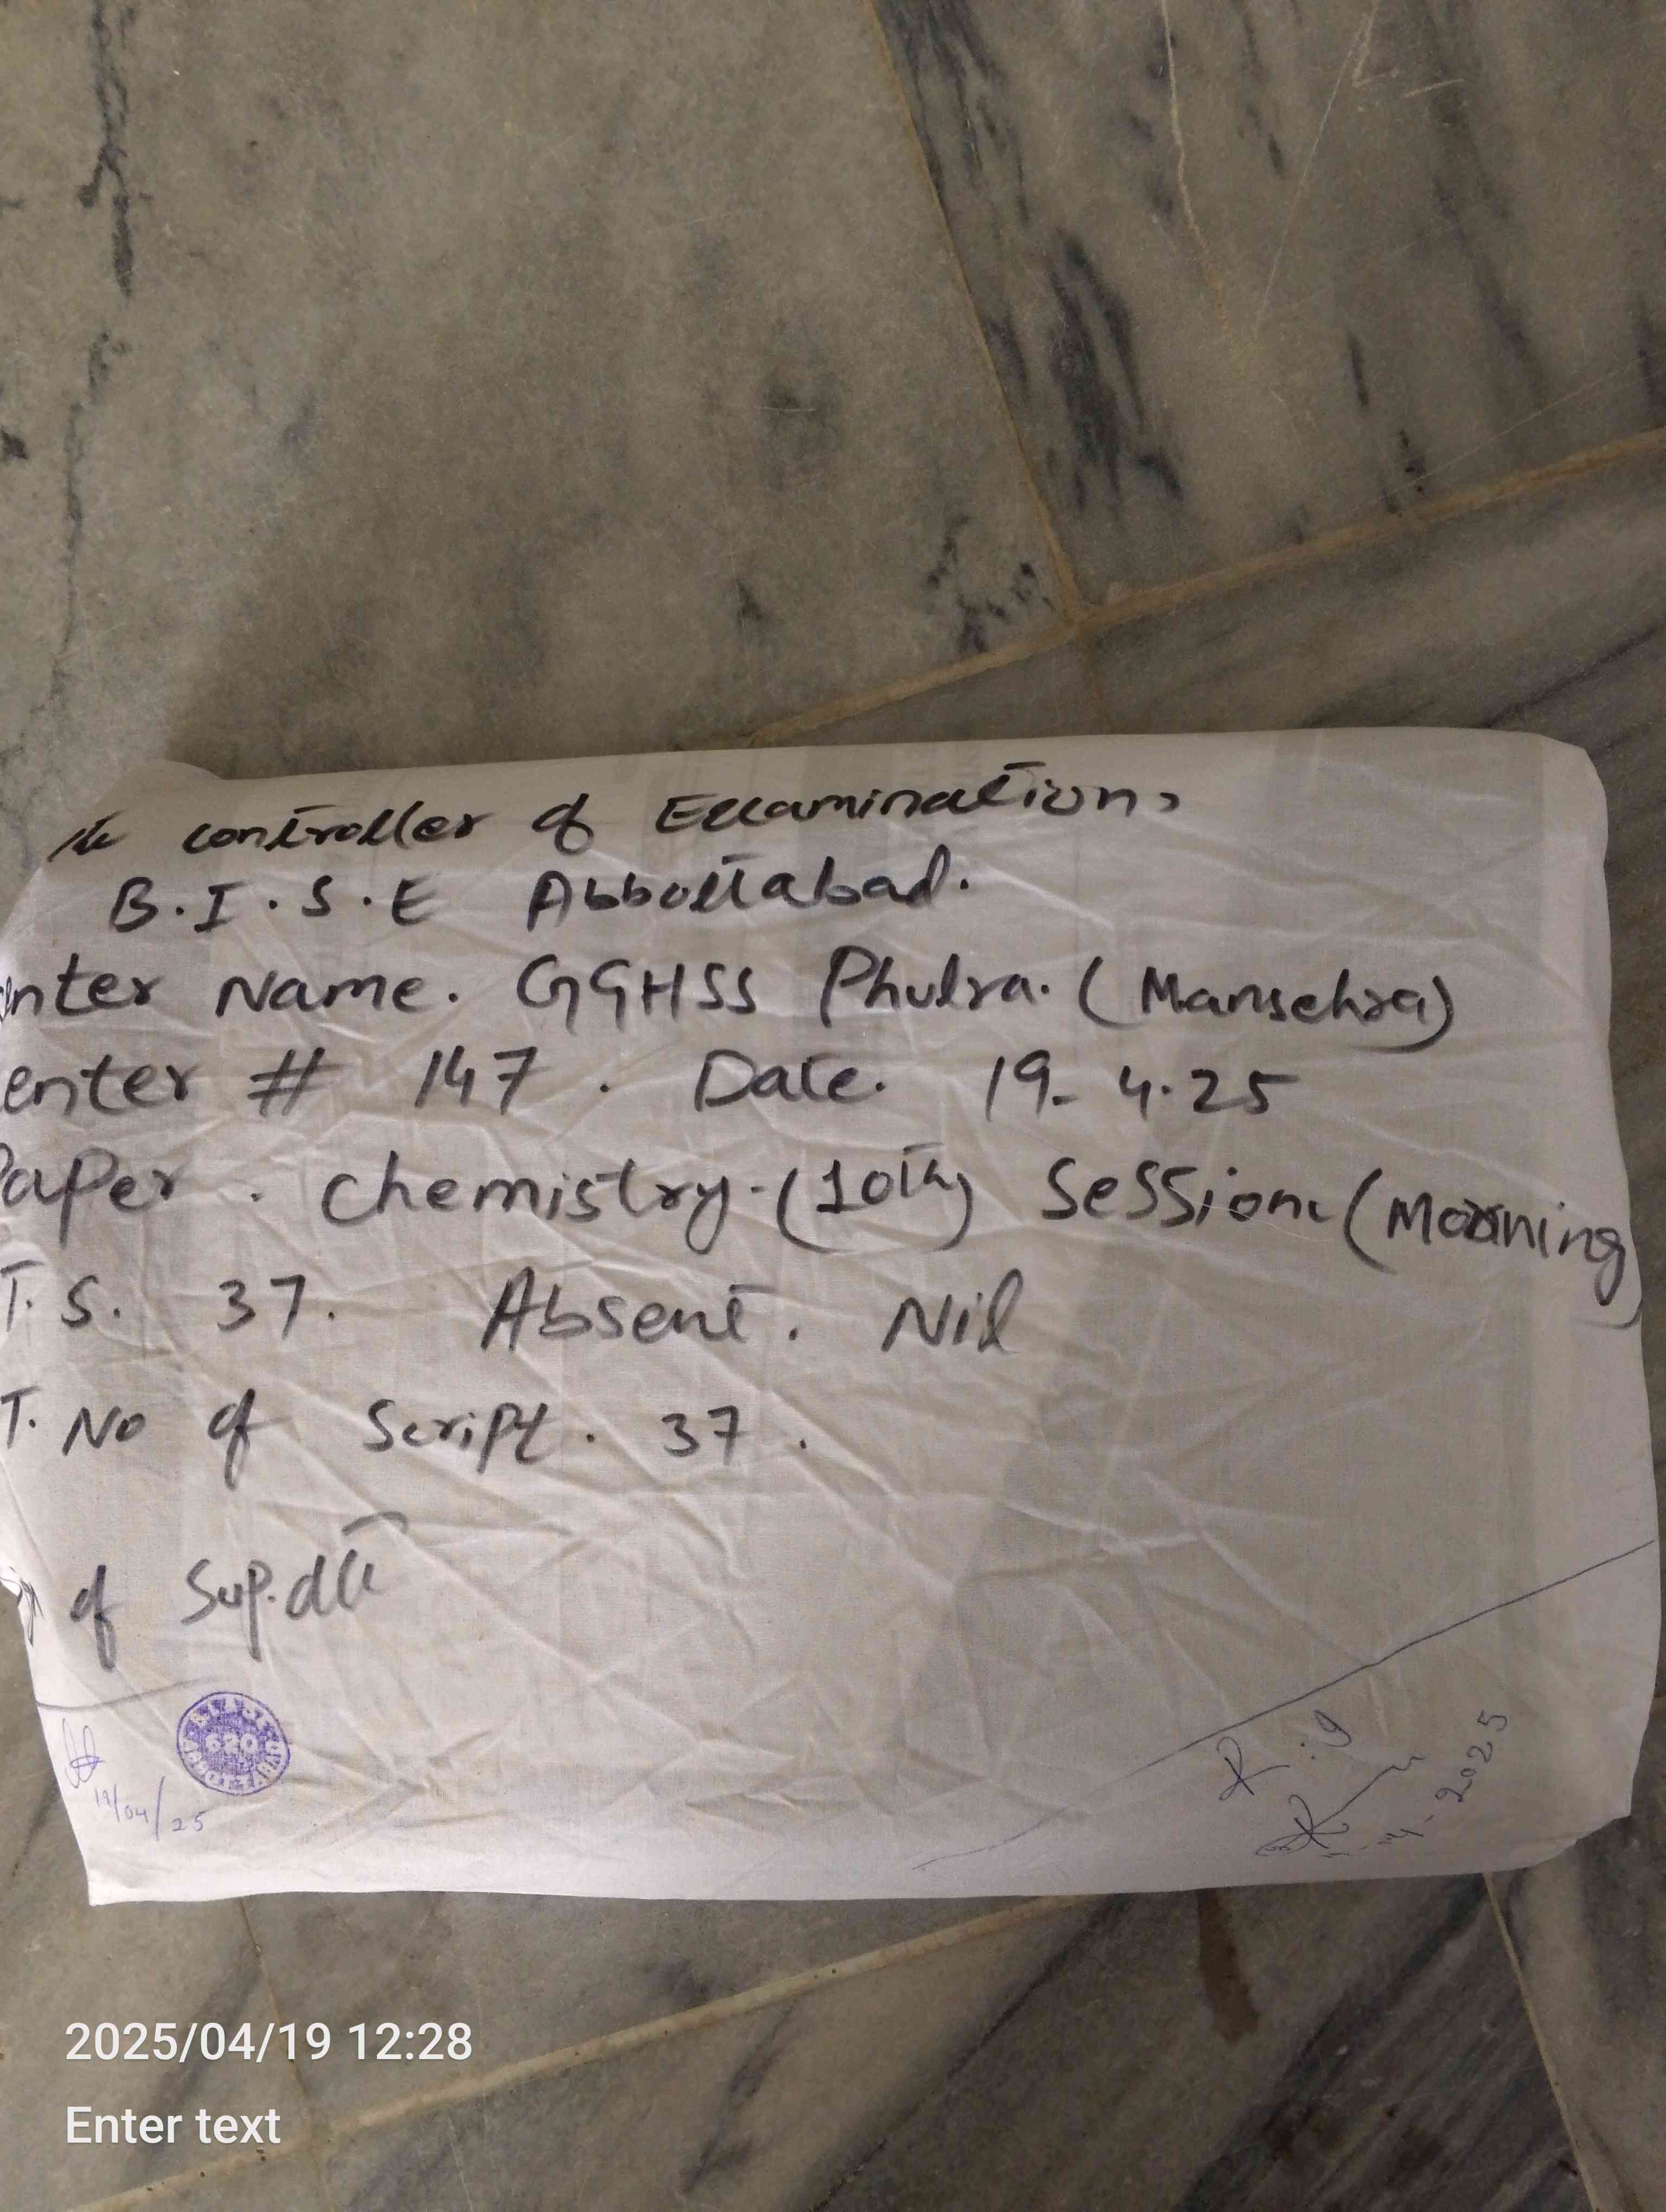 The controller of Examination,
B.I.S.E Abbottabad.
enter Name. GGHSS Phulra. (Mansehra)
enter # 147. Date. 19-4.25
Paper. Chemistry.(10th) Session (Morning)
T.S. 37. Absent. Nil
T. No of Script. 37.
of Sup.dtt
620
19/04/25
2025
2025/04/19 12:28
Enter text